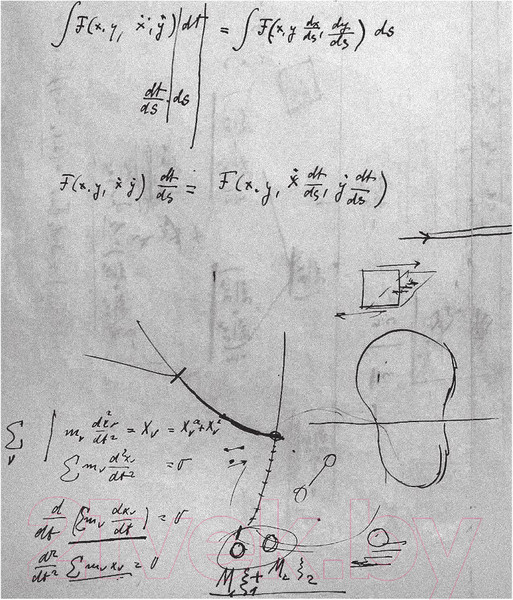 ∫ F(x, y, ẋ, ẏ) dt = ∫ F(x, y dx/ds, dy/ds) ds
dt/ds · ds
F(x, y, ẋ ẏ) dt/ds = F(x, y, ẋ dt/ds, ẏ dt/ds)
∑ν | mν d²xν/dt² = Xν = Xνᵃ + Xνⁱ
∑ mν d²xν/dt² = 0
d/dt (∑ mν dxν/dt) = 0
d²/dt² ∑ mν xν = 0
M₁ M₂
21vek.by